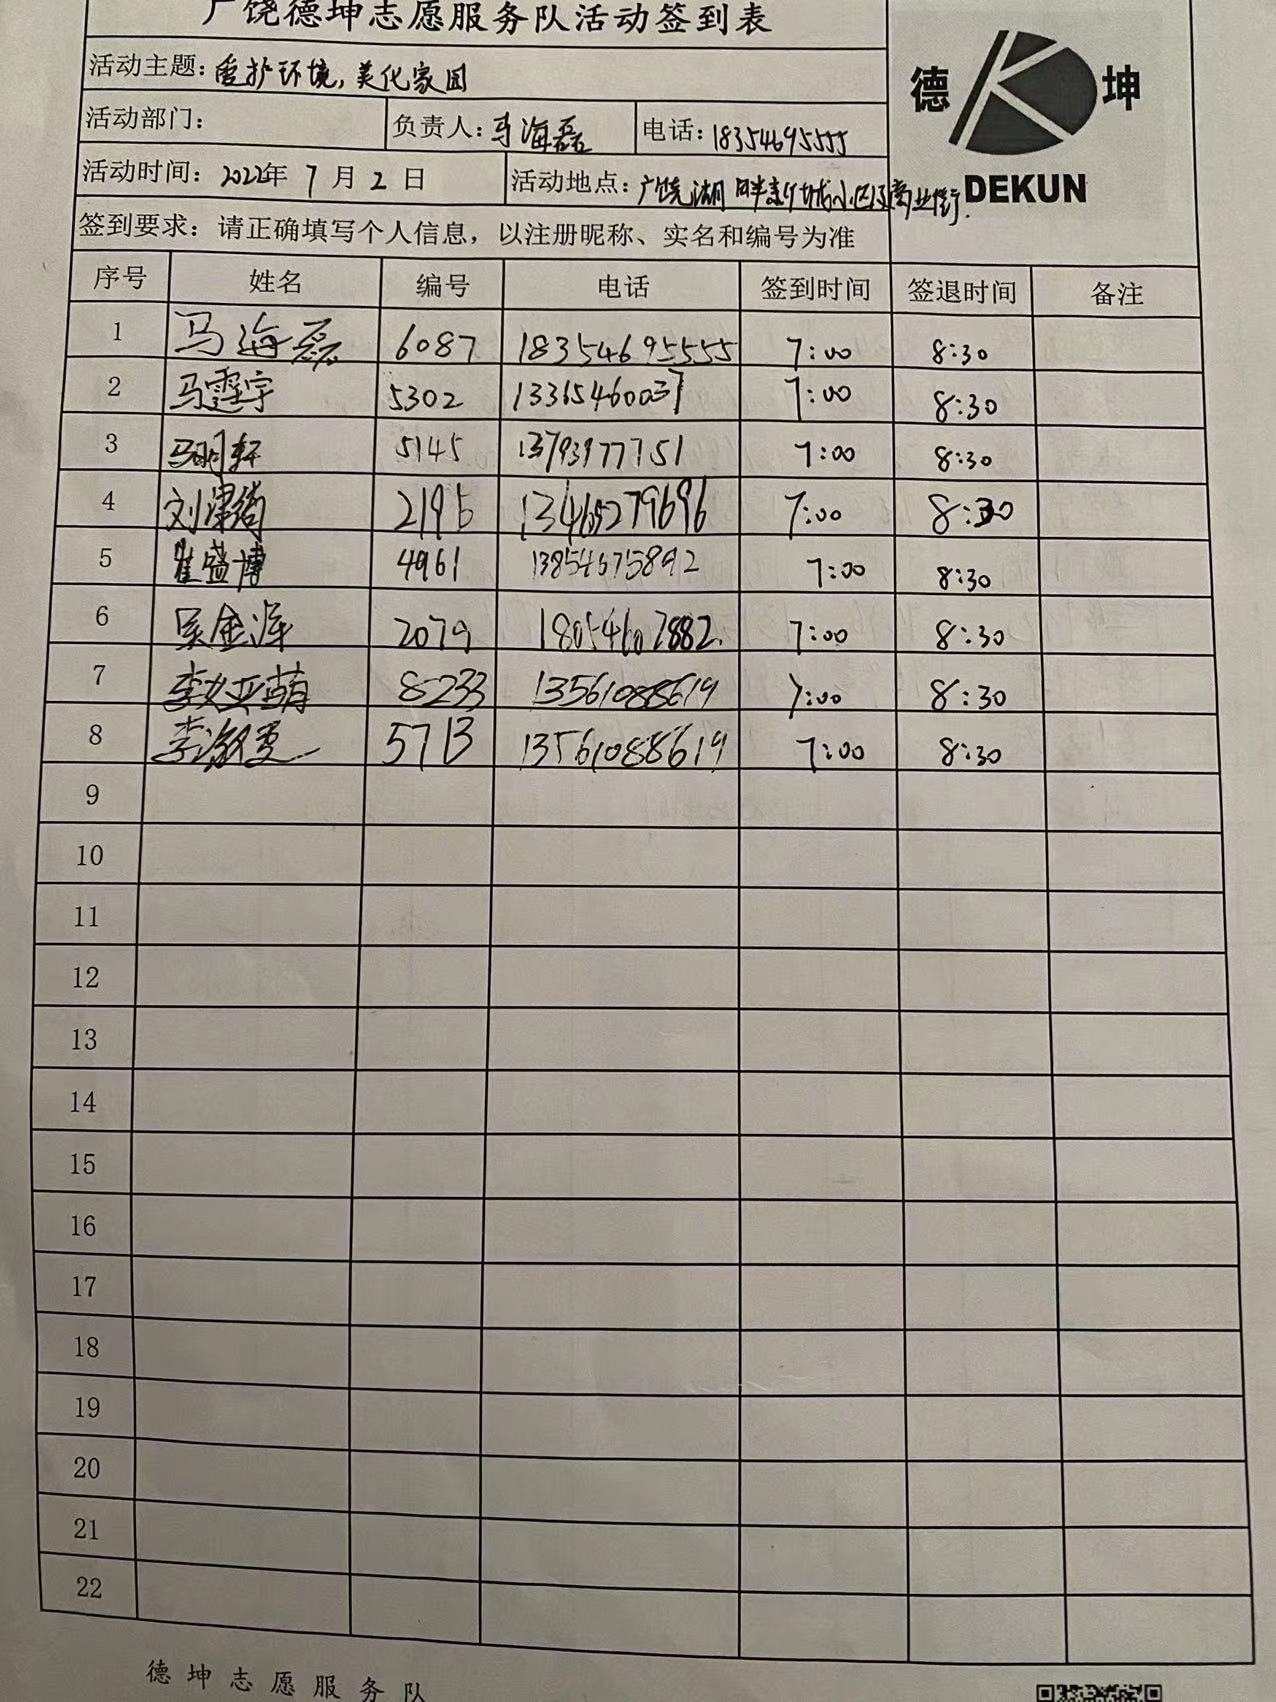 广饶德坤志愿服务队活动签到表
德 坤
DEKUN
活动主题：爱护环境，美化家园
活动部门： 负责人：马海磊 电话：18354695555
活动时间：2022年 7 月 2 日 活动地点：广饶湖畔新城小区及商业街.
签到要求：请正确填写个人信息，以注册昵称、实名和编号为准
序号 姓名 编号 电话 签到时间 签退时间 备注
1 马海磊 6087 18354695555 7:00 8:30
2 马霆宇 5302 13365460037 7:00 8:30
3 马明轩 5145 13793977751 7:00 8:30
4 刘津 13465279696 7:00 8:30
5 崔盛博 4961 13854675892 7:00 8:30
6 吴金泽 2079 18054607882 7:00 8:30
7 李亚萌 8233 13561088619 7:00 8:30
8 李 5713 13561088619 7:00 8:30
9
10
11
12
13
14
15
16
17
18
19
20
21
22
德坤志愿服务队